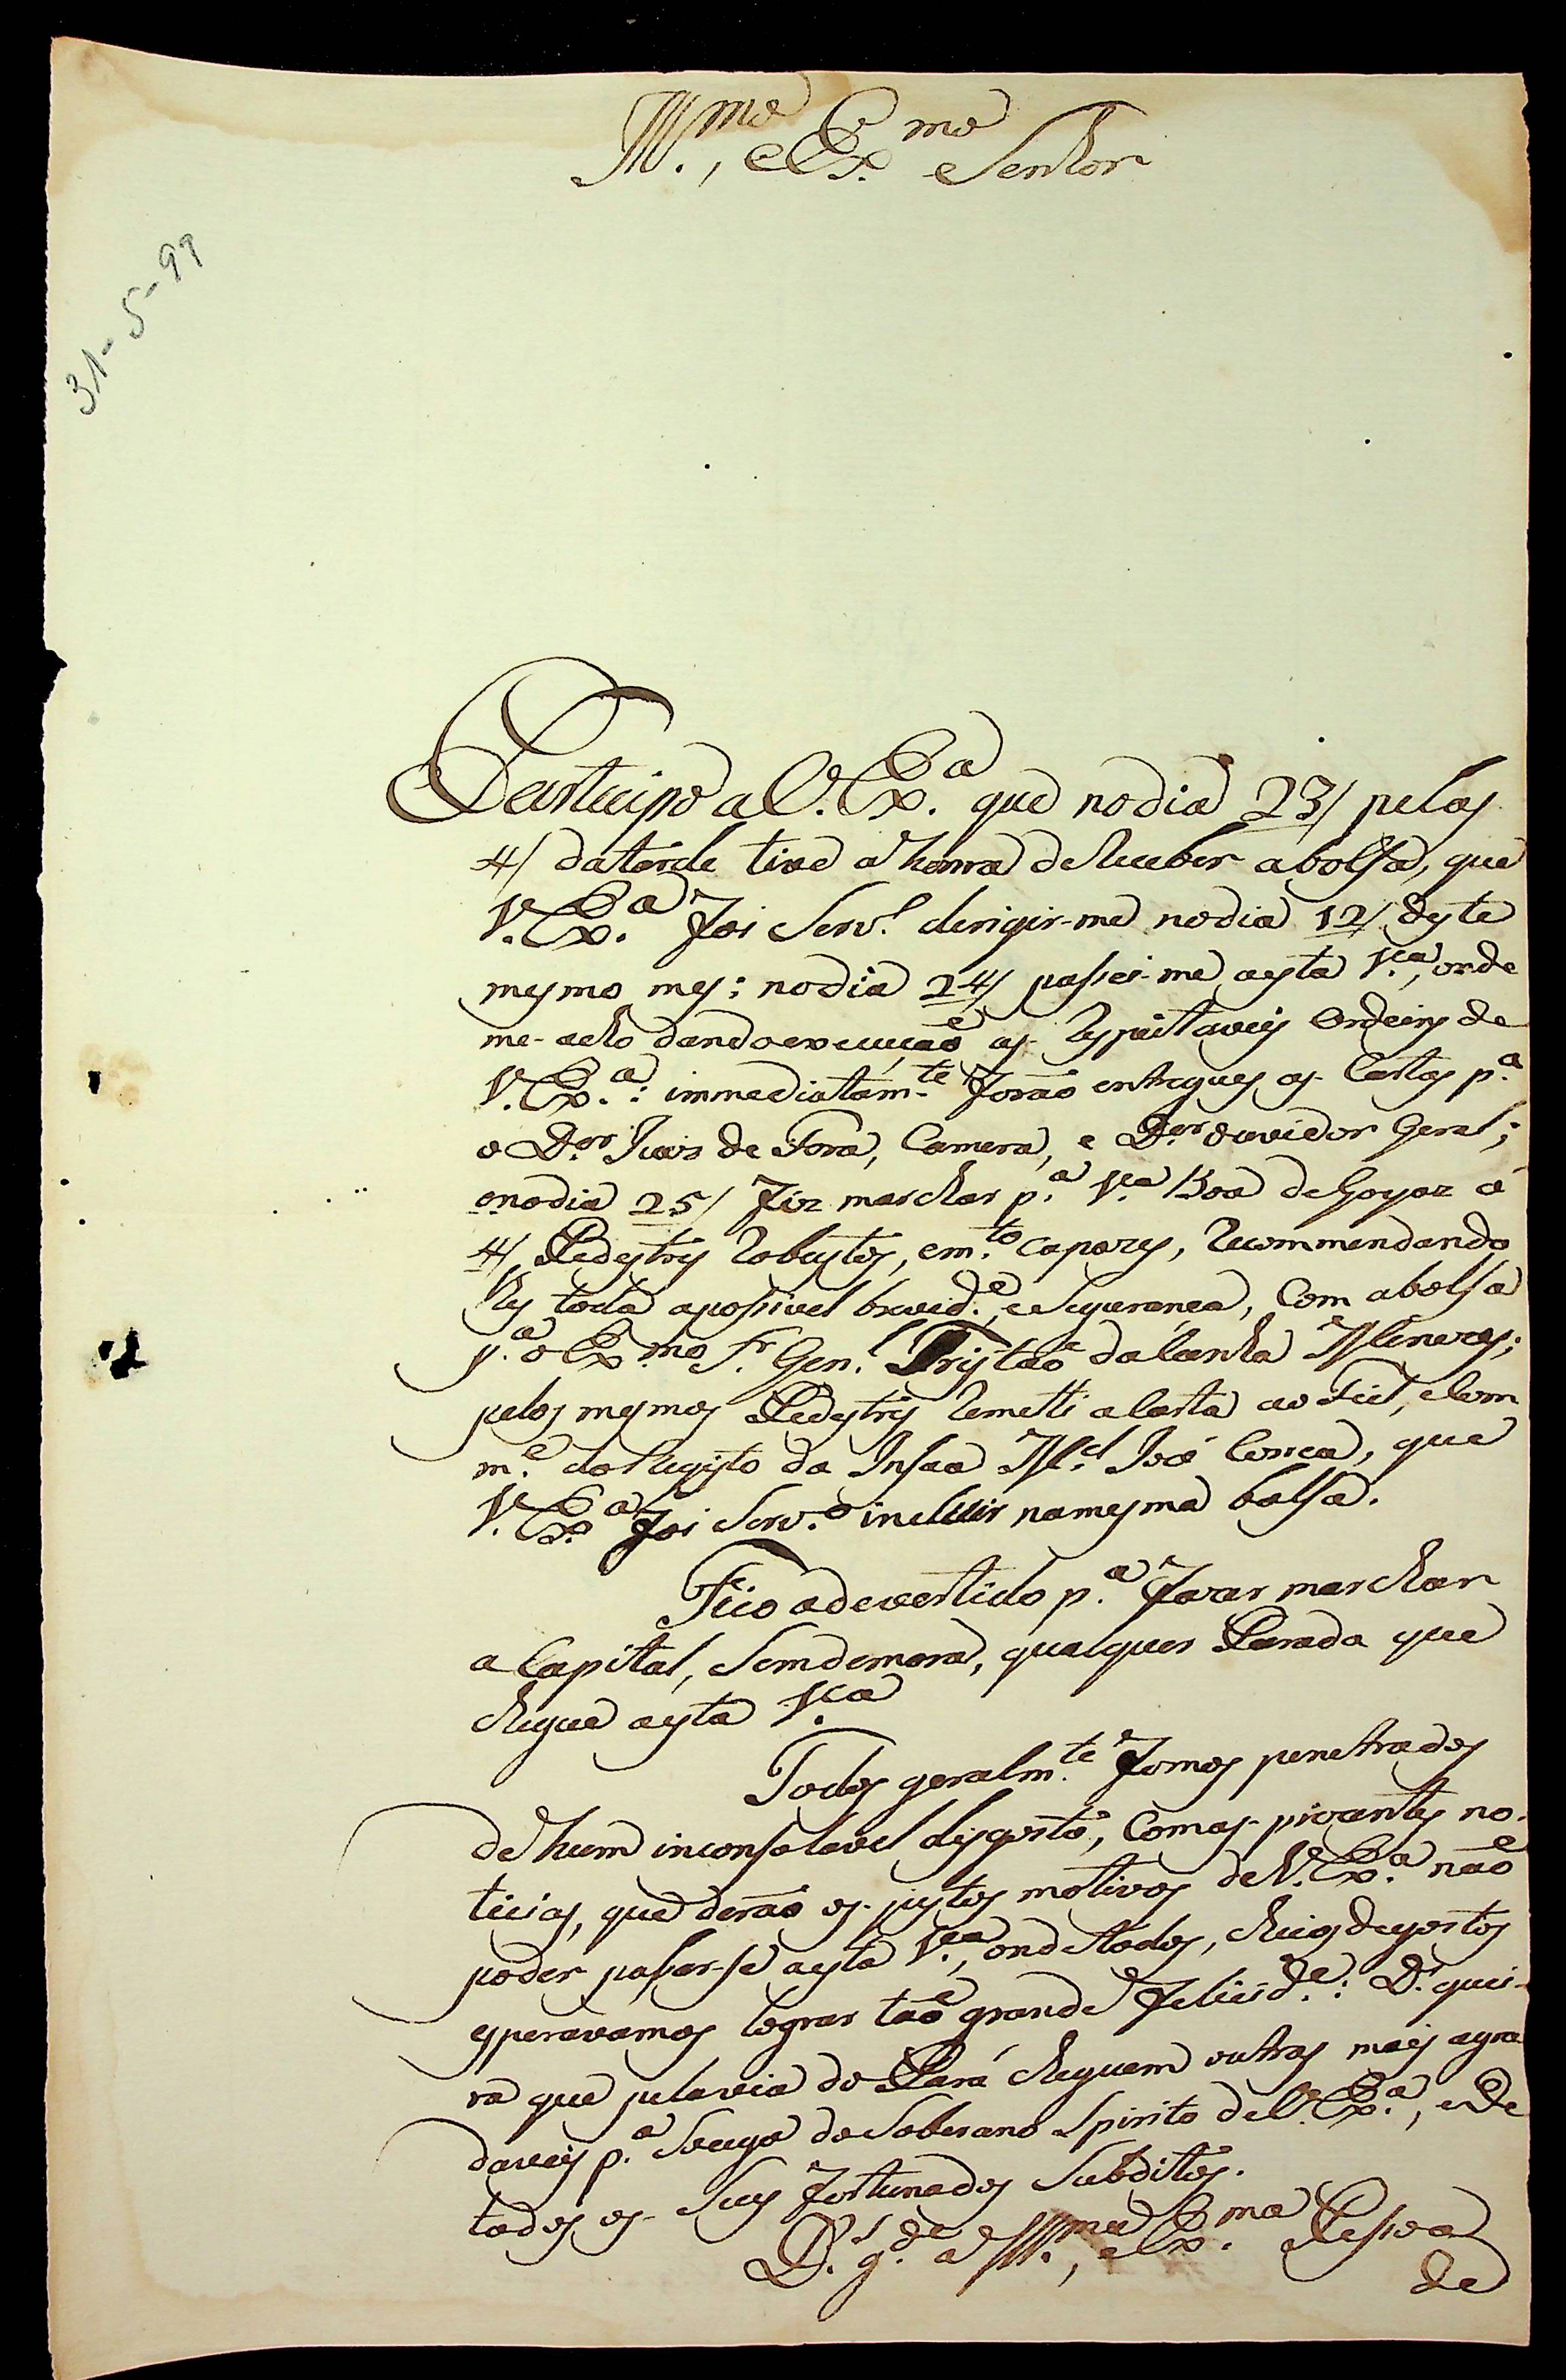 Ill.mo, e Ex.mo Senhor
31-5-99
Participo a V. Ex.a que no dia 23/ pelas
4/ da tarde tive a honra de Receber a bolsa, que
V. Ex.a foi Serv.o derigir-me no dia 12/ deste
mesmo mes: no dia 24/ passei-me a esta V.a, onde
me-acho dando execução as- Respeitaveis Ordeins de
V. Ex.a: immediatam.te forão entregues as- Cartas p.a
o D.or Juis de Fora, Camera, e D.or ouvidor Geral;
e no dia 25/ fiz marchar p.a V.a Boa de Goyaz á
4/ Pedestris Robustos, e m.to capazes, Recommendando
lhes toda a possivel brevid.e, e Segurança, Com a bolsa
p.a o Ex.mo S.r Gen.l Tristão da Cunha Menezes;
pelos mesmos Pedestris Remetti a Carta ao Fiel, e Com
m.e do Registo da Insua M.el José Correa, que
V. Ex.a foi Serv.o incluir na mesma bolsa.
Fico adevertido p.a fazer marchar
a Capital, Sem demora, qualquer Parada que
chegue a esta V.a
Todos geralm.te fomos penetrados
de hum inconsolavel disgosto, Com as- picantes no-
ticias, que derão os- justos motivos de V. Ex.a não
poder passar-se a esta V.a, onde todos, cheios de gostos
esperavamos lograr tão grande felicid.e: D.s quei-
ra que pela via do Pará cheguem outras mais agra
daveis p.a Socego do Soberano Spirito de V. Ex.a, e de
todos os- Seus fortunados Subditos.
D.s g.de a Ill.ma, e Ex.ma Pessoa
de